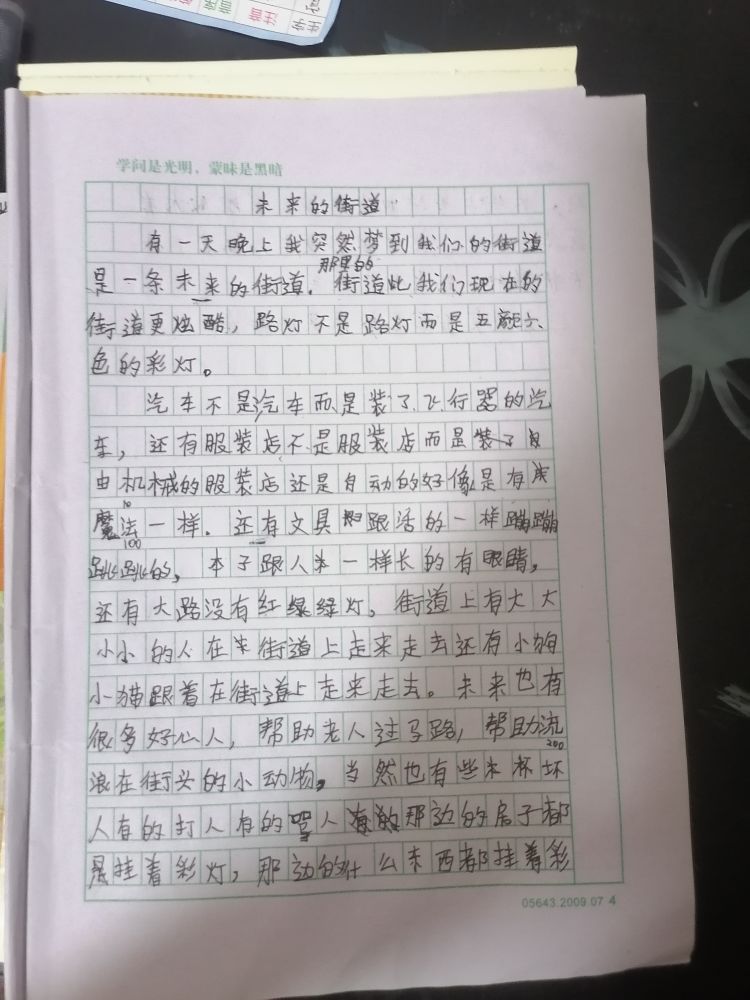 注音
学问是光明,蒙昧是黑暗
未来的街道
有一天晚上我突然梦到我们的街道
那里的
是一条未来的街道.街道比我们现在的
街道更炫酷,路灯不是路灯而是五颜六
色的彩灯。
汽车不是汽车而是装了飞行器的汽
车,还有服装店不是服装店而是装了自
由机械的服装店还是自动的好像是有
魔法一样.还有文具跟活的一样蹦蹦
100
跳跳的,本子跟人一样长的有眼睛,
还有大路没有红绿灯,街道上有大大
小小的人在街道上走来走去还有小狗
小猫跟着在街道上走来走去。未来也有
很多好心人,帮助老人过马路,帮助流
200
浪在街头的小动物,当然也有些坏
人有的打人有的骂人那边的房子都
是挂着彩灯,那边的什么东西都挂着彩
05643.2009.07 4